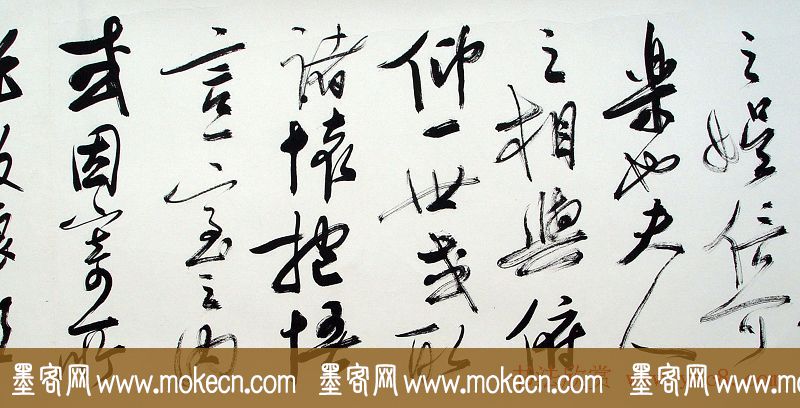 之娱信可
樂也夫人
之相與俯
仰一世或取
諸懷抱悟
言一室之内
或因寄所
墨客网 www.mokecn.com 墨客网 www.mokecn.com 墨客网 www.mokecn.com